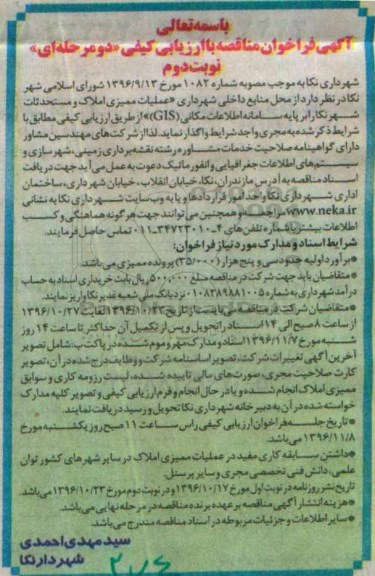 باسمه‌تعالی
آگهی فراخوان مناقصه با ارزیابی کیفی «دو مرحله‌ای»
نوبت دوم
شهرداری نکا به موجب مصوبه شماره ۱۰۸۲ مورخ ۱۳۹۶/۹/۱۳ شورای اسلامی شهر
نکا در نظر دارد از محل منابع داخلی شهرداری «عملیات ممیزی املاک و مستحدثات
شهر نکا بر پایه سامانه اطلاعات مکانی (GIS)» از طریق ارزیابی کیفی مطابق با
شرایط ذکر شده به مجری واجد شرایط واگذار نماید. لذا از شرکت‌های مهندسین مشاور
دارای گواهینامه صلاحیت خدمات مشاوره رشته نقشه‌برداری زمینی، شهرسازی و
سیستم‌های اطلاعات جغرافیایی و انفورماتیک دعوت به عمل می‌آید جهت دریافت
اسناد مناقصه به آدرس مازندران، نکا، خیابان انقلاب، خیابان شهرداری، ساختمان
اداری شهرداری نکا واحد امور قراردادها و یا به وب سایت شهرداری نکا به نشانی
www.neka.ir مراجعه و همچنین می‌توانند جهت هرگونه هماهنگی و کسب
اطلاعات بیشتر با شماره تلفن‌های ۴-۳۴۷۲۳۰۱۰-۰۱۱ تماس حاصل فرمایند.
شرایط اسناد و مدارک مورد نیاز فراخوان:
*برآورد اولیه حدود سی و پنج هزار (۳۵/۰۰۰) پرونده ممیزی می‌باشد.
*متقاضیان باید جهت شرکت در مناقصه مبلغ ۵۰۰,۰۰۰ ریال بابت خریداری اسناد به حساب
درآمد شهرداری به شماره ۰۱۰۸۳۸۹۸۸۱۰۰۵ نزد بانک ملی شعبه غدیر نکا واریز نمایند.
*متقاضیان شرکت در مناقصه می‌بایست از تاریخ ۱۳۹۶/۱۰/۲۳ لغایت ۱۳۹۶/۱۰/۲۷
از ساعت ۸ صبح الی ۱۴ اسناد را تحویل و پس از تکمیل آن حداکثر تا ساعت ۱۴ روز
شنبه مورخ ۱۳۹۶/۱۱/۷ اسناد و مدارک مهر و موم شده در پاکت ب: شامل تصویر
آخرین آگهی تغییرات شرکت، تصویر اساسنامه شرکت و وظایف درج شده در آن، تصویر
کارت صلاحیت مجری، صورت‌های مالی تایید شده، لیست رزومه کاری و سوابق
ممیزی املاک انجام شده و یا در حال انجام و فرم ارزیابی کیفی و تصویر کلیه مدارک
خواسته شده در آن به دبیرخانه شهرداری نکا تحویل و رسید دریافت نمایند.
*تاریخ جلسه فراخوان ارزیابی کیفی راس ساعت ۱۱ صبح روز یکشنبه مورخ
۱۳۹۶/۱۱/۸ می‌باشد.
*داشتن سابقه کاری مفید در عملیات ممیزی املاک در سایر شهرهای کشور توان
علمی، دانش فنی تخصصی مجری و سایر پرسنل.
تاریخ نشر روزنامه در نوبت اول مورخ ۱۳۹۶/۱۰/۱۷ و در نوبت دوم مورخ ۱۳۹۶/۱۰/۲۳ می‌باشد.
*هزینه انتشار آگهی مناقصه بر عهده برنده مناقصه در مرحله نهایی می‌باشد.
*سایر اطلاعات و جزئیات مربوطه در اسناد مناقصه مندرج می‌باشد.
سید مهدی احمدی
شهردار نکا